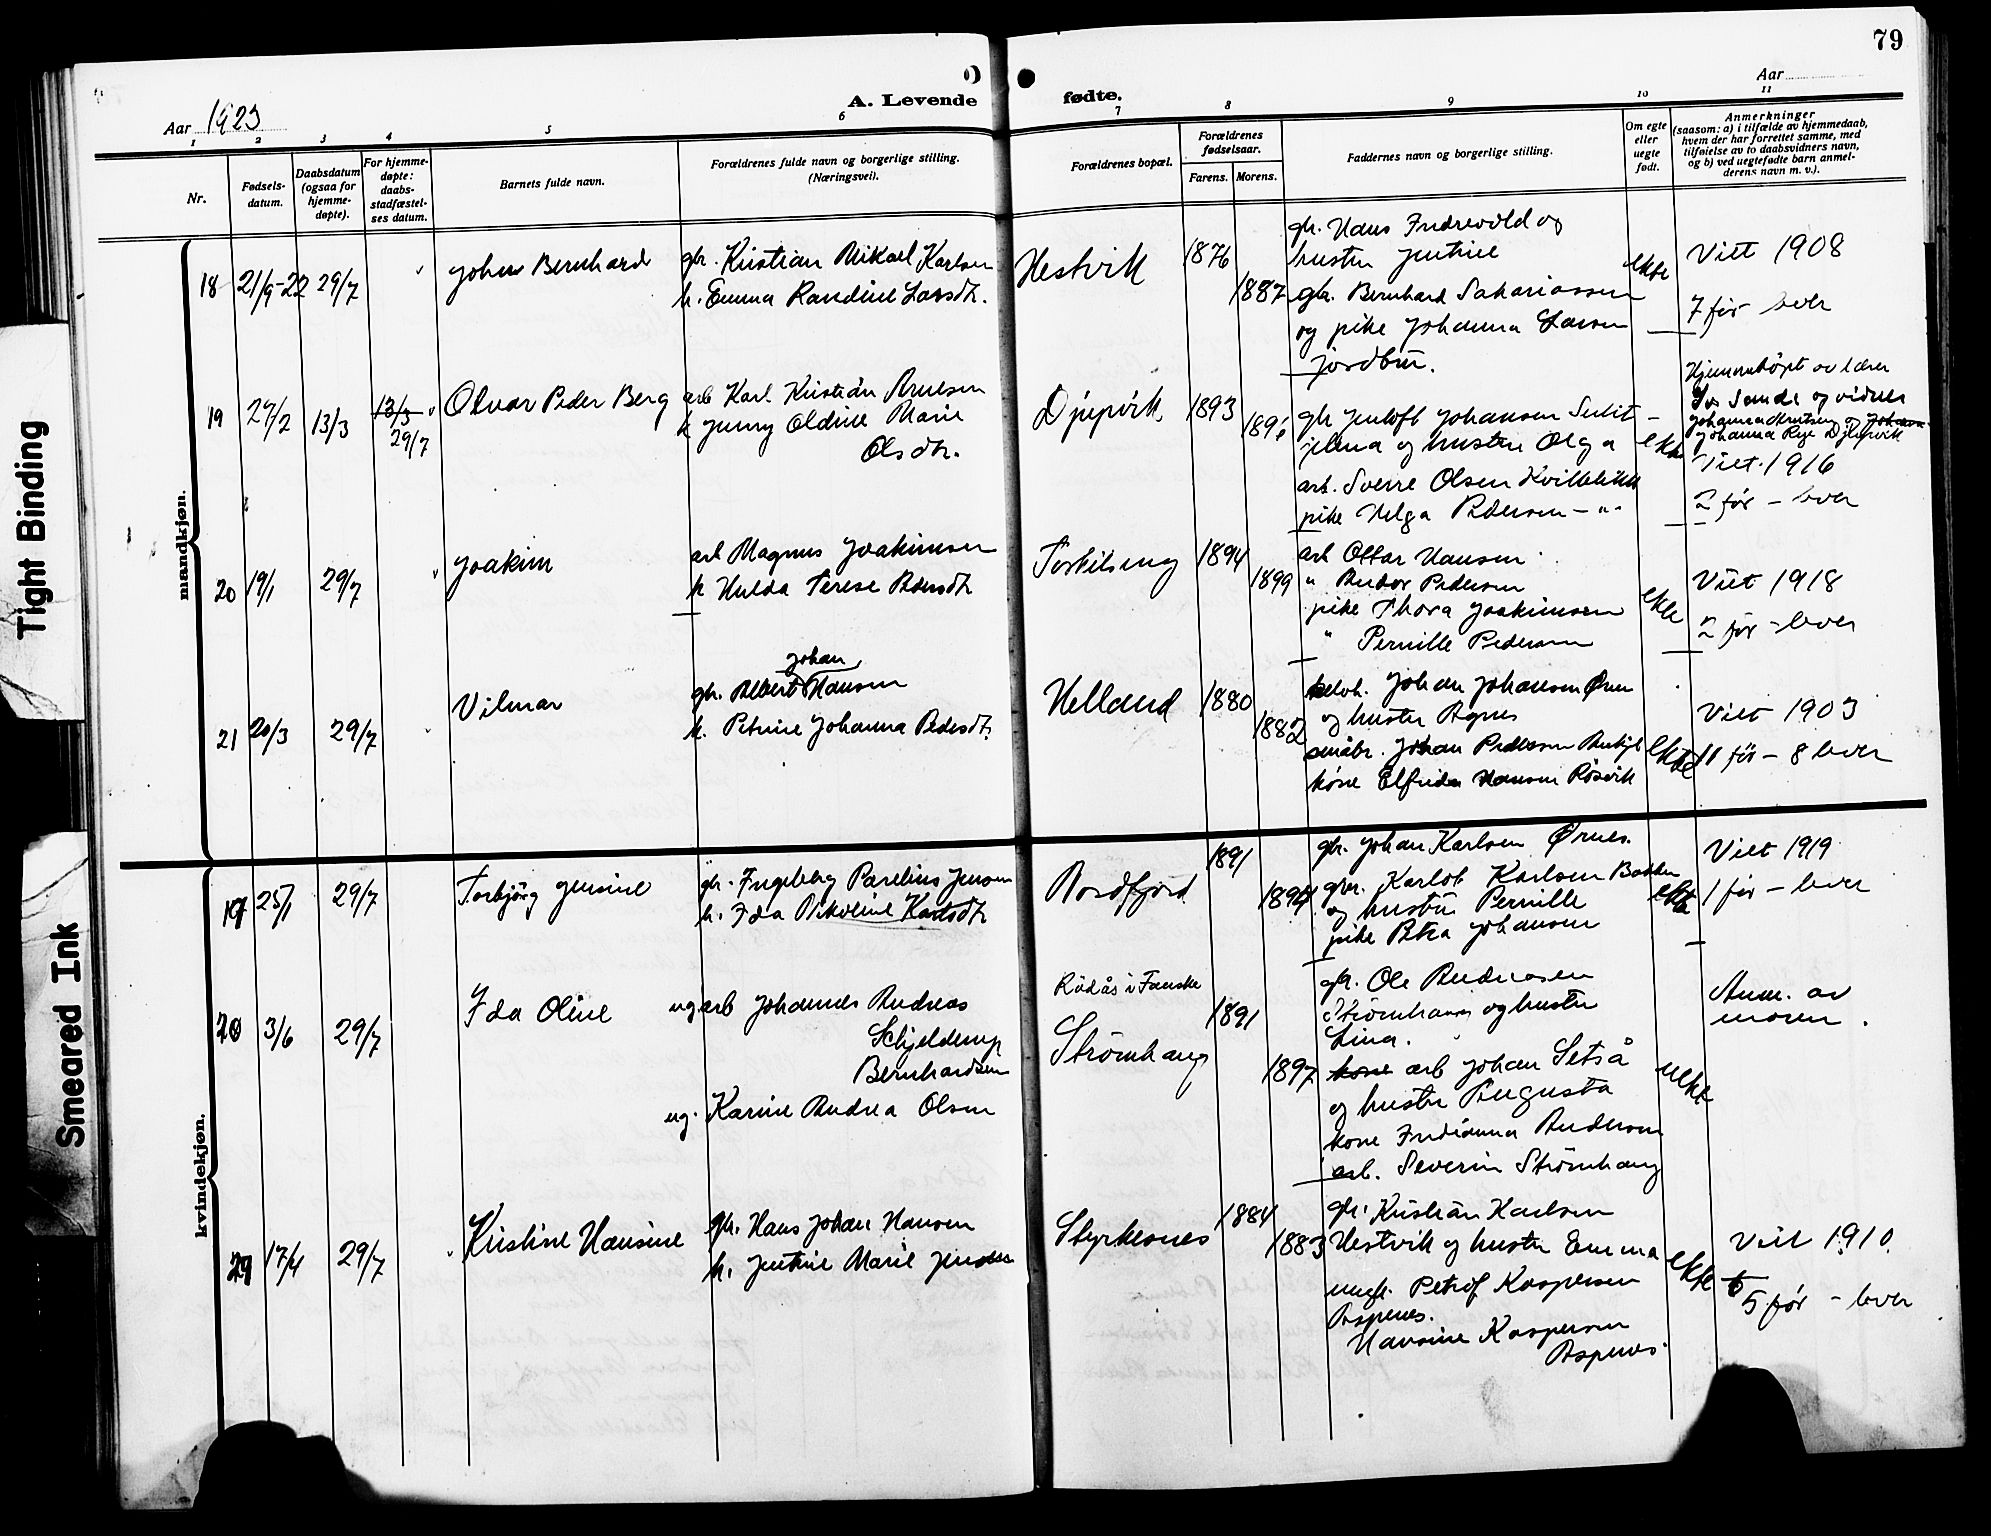 79
Aar 1923
A. Levende
fødte.
Aar
1
2
3
4
5
6
7
8
9
10
11
Nr.
Fødsels-
datum.
Daabsdatum
(ogsaa for
hjemme-
døpte).
For hjemme-
døpte:
daabs-
stadfæstel-
ses datum.
Barnets fulde navn.
Forældrenes fulde navn og borgerlige stilling.
(Næringsvei).
Forældrenes bopæl.
Forældrenes
fødselsaar.
Farens.
Morens.
Faddernes navn og borgerlige stilling.
Om egte
eller
uegte
født.
Anmerkninger
(saasom: a) i tilfælde av hjemmedaab,
hvem der har forrettet samme, med
tilføielse av to daabsvidners navn,
og b) ved uegtefødte barn anmel-
derens navn m. v.).
mandkjøn.
18
21/9-22
29/7
Johan Bernhard
gbr. Kristian Mikael Karlsen
h. Emma Randine Larsdtr.
Hestvik
1876
1887
gbr. Hans
og
hustru Jentine
gbr. Bernhard Sakariassen
og pike Johanna Larsen
Jordbru.
ekte
Viet 1908
7 før lever
19
27/2
13/3
13/3
29/7
Olvar Peder Berg
arb Karl Kristian Arnesen
h Jenny Oldine Marie
Olsdtr.
Djupvik
1893
gbr Johansen Sulit-
jelma og hustru Olga
arb. Sverre Olsen Kvikblikk
pike Helga Pedersen - " -
ekte
Hjemmedøpt av lærer
Sande og vidner
Johanna
Johanna
Djupvik
Viet. 1916
2 før - lever
20
19/1
29/7
Joakim
arb Magnus Joakimsen
h Hulda Terese Pedersdtr
1894
1899
arb Ottar Hansen
" Pedersen
pike Thora Joakimsen
" Pernille Pedersen
ekte
Viet 1918
2 før - lever
21
20/3
29/7
Vilmar
Johan
gbr. Albert Hansen
h. Petrine Johanna Pedersdtr.
Helland
1880
1882
Johan Johansen Ørnes
og hustru Agnes
småbr. Johan Pedersen
kone Elfrida Hansen Røsvik
ekte
Viet 1903
11 før - 8 lever
kvindekjøn.
19
25/1
29/7
Torbjørg Jensine
gbr. Ingeberg Parelius Jensen
h. Ida Nikoline Karlsdtr
Nordfjord
1891
1894
gbr. Johan Karlsen Ørnes.
gbr. Karlot Karlsen Bakken
og hustru Pernille
pike Petra Johansen
ekte
Viet 1919
1 før - lever
20
3/6
29/7
Ida Oline
ug arb Johannes Andreas
Schjelderup
Bernhardsen
ug. Karine Andrea Olsen
Rödås i Fauske
Strömhaug
1891
1897
gbr. Ole Andreasen
Strömhaug og hustru
Lina.
kone arb Johan Setså
og hustru Augusta
kone Andersen
arb. Severin Strömhaug
uekte
Anm. av
moren.
21
17/4
29/7
Kristine Hansine
gbr. Hans Johan Hansen
h. Jentine Marie Jensdtr
Styrkesnes
1884
1883
gbr. Kristian Karlsen
Hestvik og hustru Emma
ungk. Petrof Kaspersen
Aspenes.
Hansine Kaspersen
Aspenes.
ekte
Viet 1910.
5 før - lever
Tight Binding
Smeared Ink